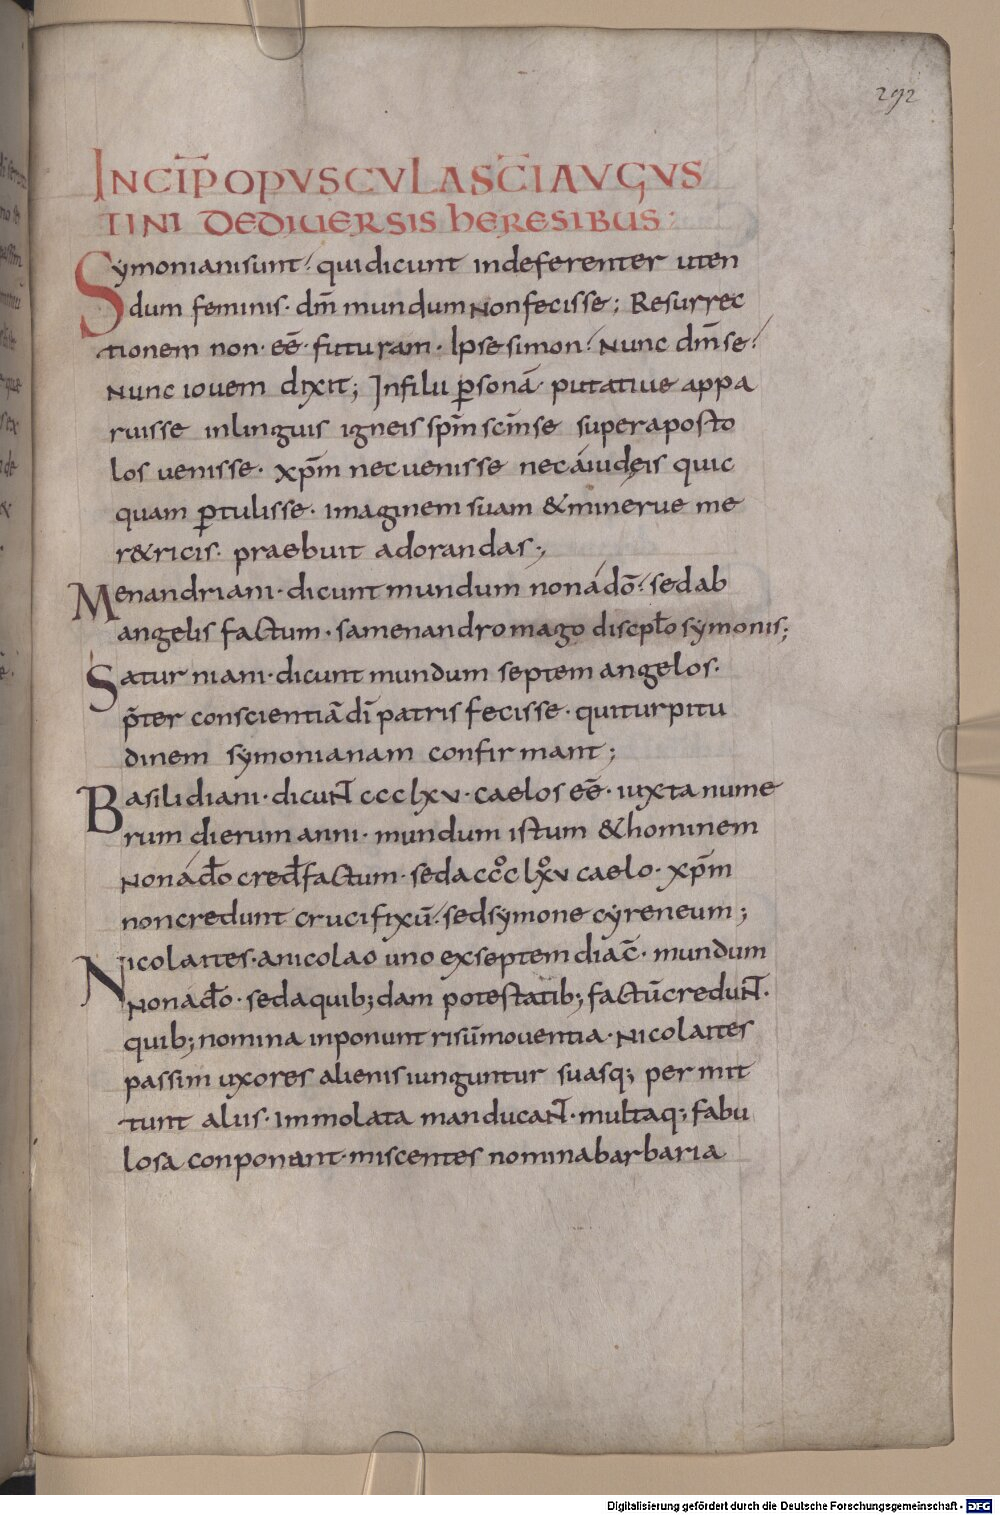 292
INCIP̄ OPVSCVLA SC̄I AVGVS
TINI DE DIUERSIS HERESIBUS:
Symoniani sunt. qui dicunt indeferenter uten
dum feminis. dm̄ mundum Non fecisse; Resurrec
tionem non. eē. futuram. Ipse simon. Nunc dm̄ se.
Nunc iouem dixit; In filii ꝑsonā. putatiue appa
ruisse in linguis igneis spm̄ scm̄ se super aposto
los uenisse. xpm̄ nec uenisse nec a iudęis quic
quam ꝑtulisse. imaginem suam & minerue me
r&ricis. praebuit adorandas;
Menandriani. dicunt mundum non a dō. sed ab
angelis factum. sa menandro mago discipl̄o symonis;
Saturniani. dicunt mundum septem angelos.
p̄ter conscientiā dī patris fecisse. qui turpitu
dinem symonianam confirmant;
Basilidiani. dicuNT ccclxv. caelos eē. iuxta nume
rum dierum anni. mundum istum & hominem
Non a dō cred̄ factum. sed a ccclxv caelo. xpm̄
non credunt crucifixū. sed symone cyreneum;
Nicolaites. a nicolao uno ex septem diac̄. mundum
Non a dō. sed a quib; dam potestatib; factū creduNT.
quib; nomina inponunt risū mouentia. Nicolaites
passim uxores alienis iunguntur suasq; permit
tunt aliis. immolata manducaNT. multaq; fabu
losa conponant. miscentes nomina barbaria
Digitalisierung gefördert durch die Deutsche Forschungsgemeinschaft - DFG